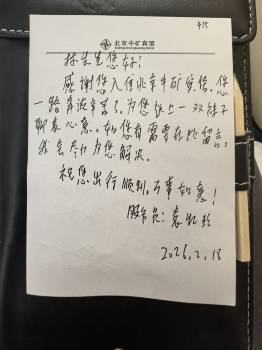 415
北京中矿宾馆
林先生您好！
感谢您入住北京中矿宾馆。您
一路奔波辛苦了，为您送上一双袜子
聊表心意。如您有需要在此留言，
我会尽力为您解决。
祝您出行顺利，万事如意！
服务员：袁
2026.2.18